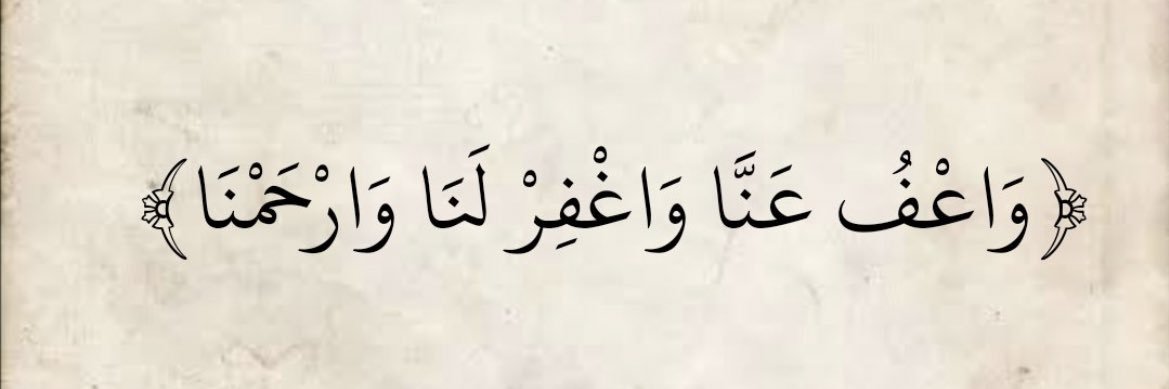 ﴿وَاعْفُ عَنَّا وَاغْفِرْ لَنَا وَارْحَمْنَا﴾